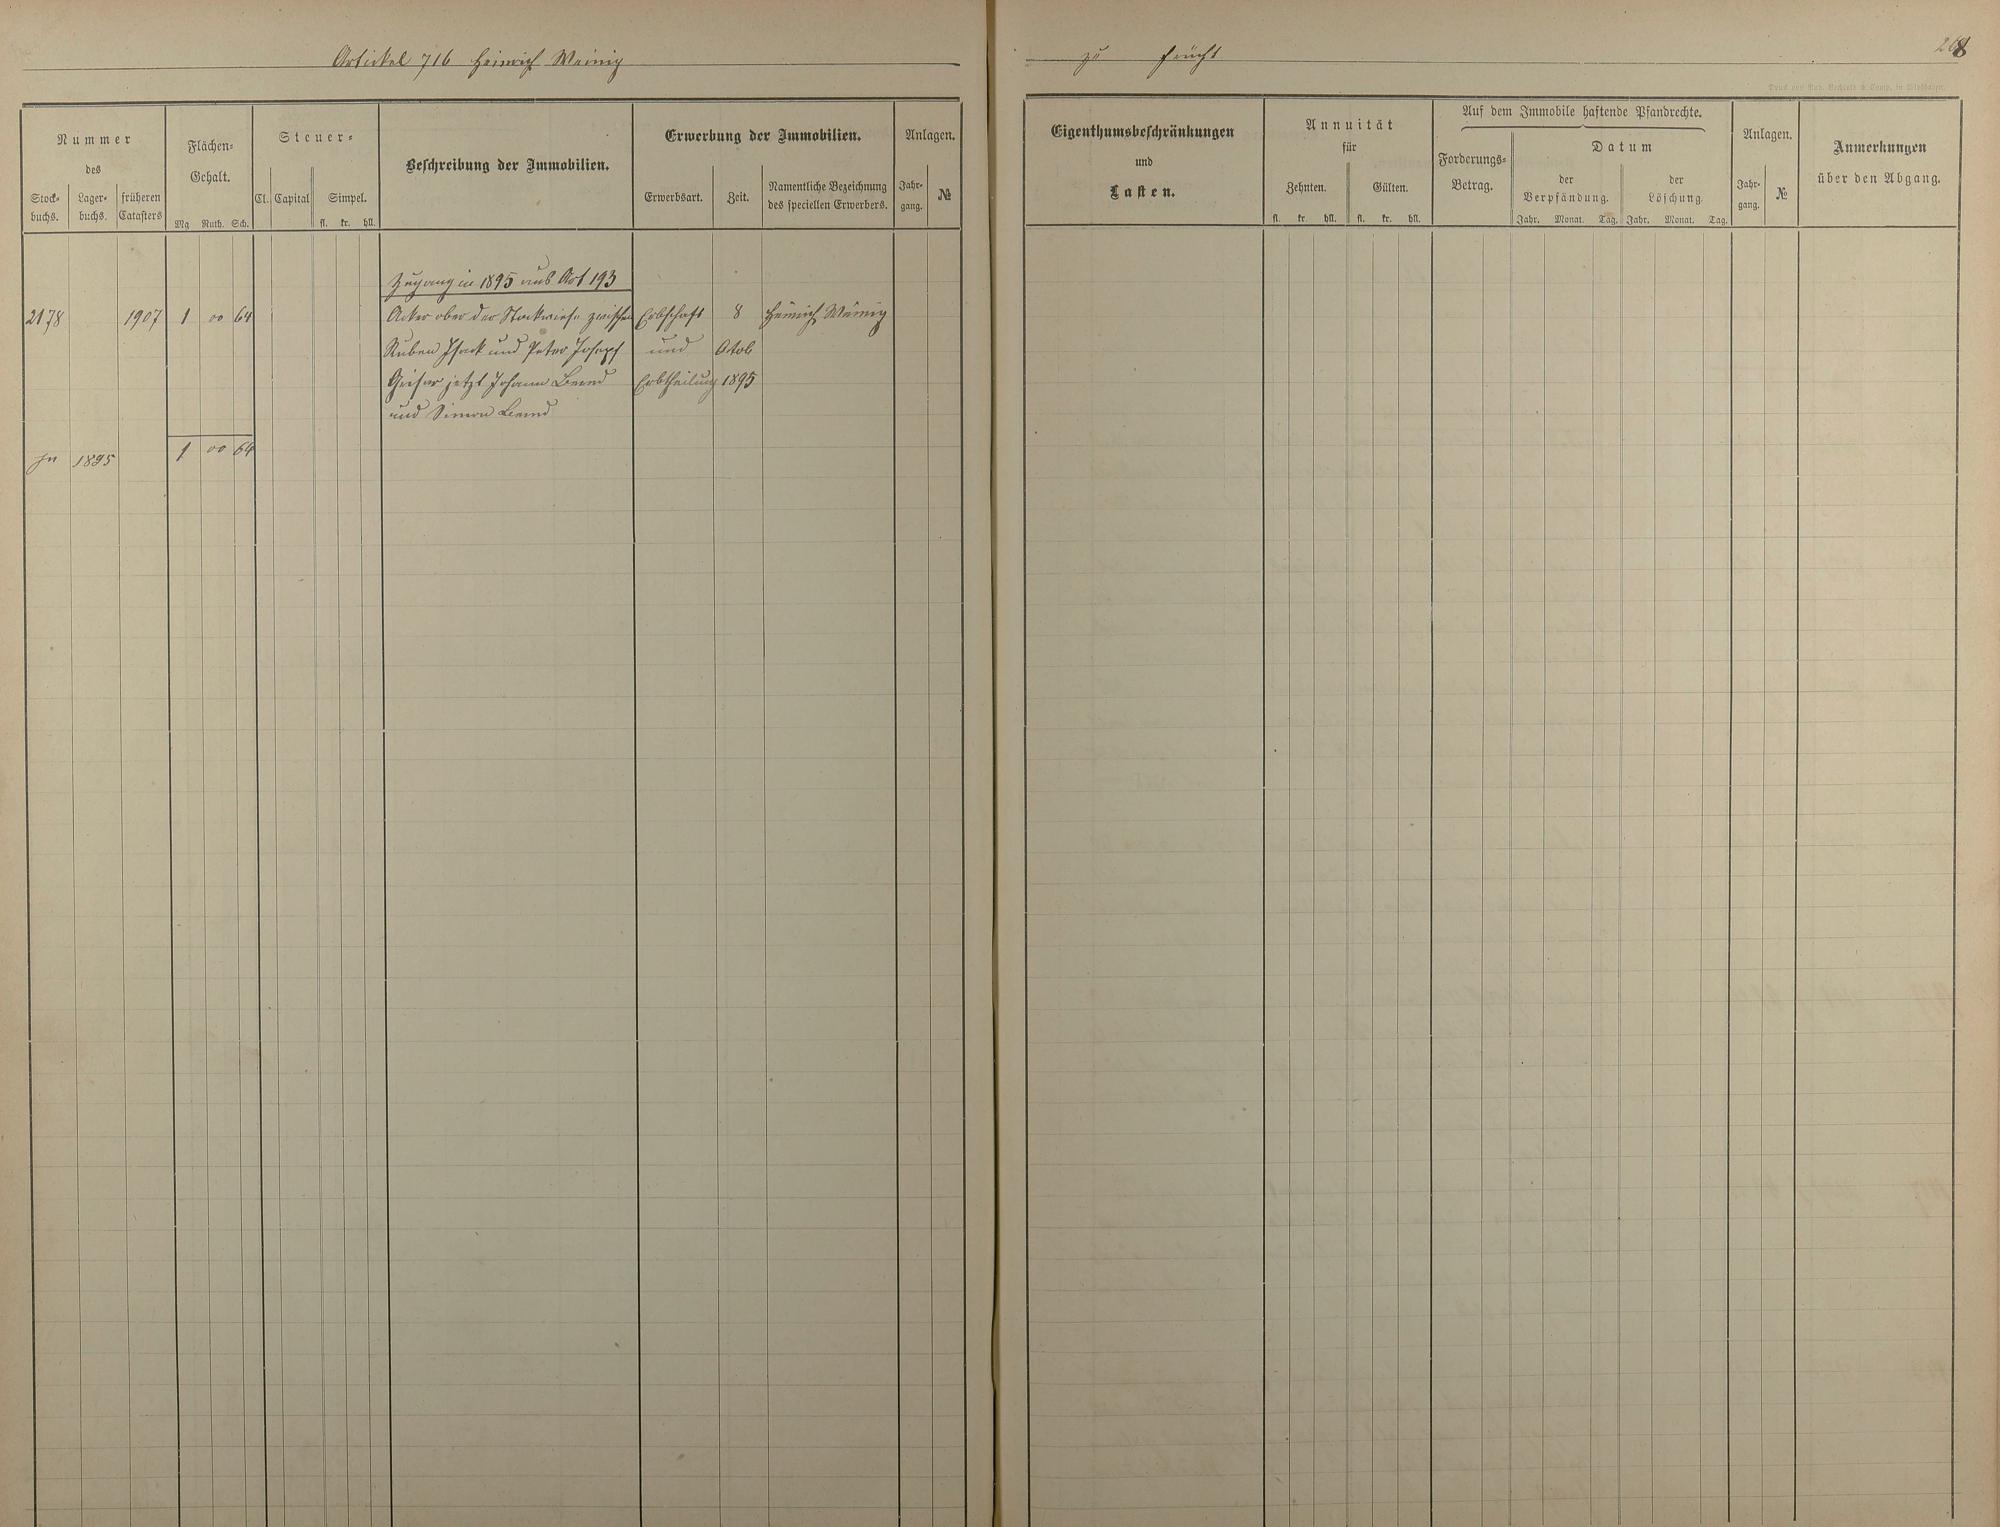 Artickel 716 Heinrich Weinig
zu Frücht
268
Nummer
des
Stock-
buchs.
Lager-
buchs.
früheren
Catasters
Flächen-
Gehalt.
Mg Ruth. Sch.
Steuer-
Cl. Capital Simpel.
fl. kr. hll.
Beschreibung der Immobilien.
Erwerbung der Immobilien.
Erwerbsart. Zeit.
Namentliche Bezeichnung
des speciellen Erwerbers.
Anlagen.
Jahr-
gang.
№
Eigenthumsbeschränkungen
und
Lasten.
Annuität
für
Zehnten. Gülten.
fl. kr. hll. fl. kr. hll.
Auf dem Immobile haftende Pfandrechte.
Forderungs-
Betrag.
Datum
der
Verpfändung.
der
Löschung.
Jahr. Monat. Tag. Jahr. Monat. Tag.
Anlagen.
Jahr-
gang.
№
Anmerkungen
über den Abgang.
Zugang in 1895 aus Art 193
2178 1907 1 00 64 Acker ober der Stockwiese zwischen Erbschaft 8 Heinrich Weinig
Ruben Isack und Peter Joseph und Octob
Geiser jetzt Johann Bernd Erbtheilung 1895
und Simon Bernd
In 1895 1 00 64